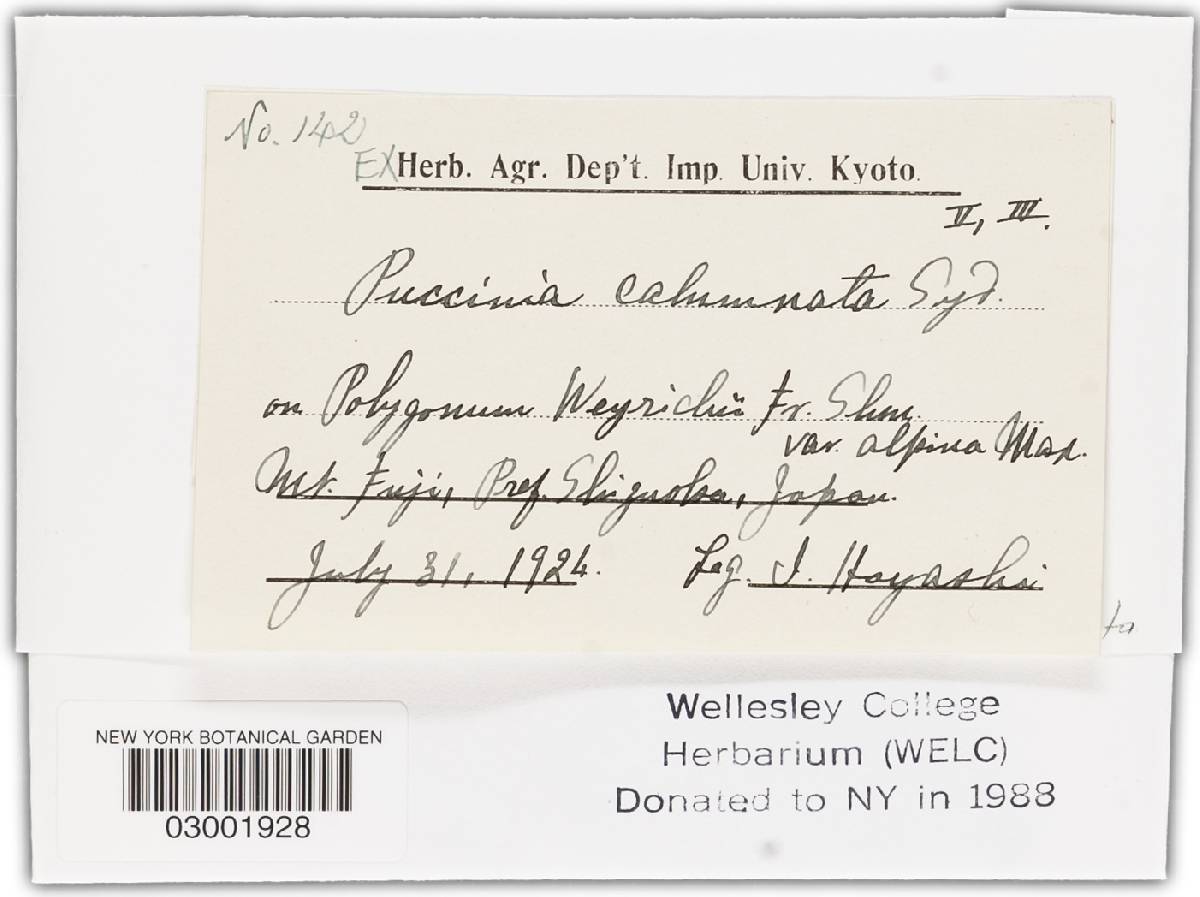 No. 142
Ex Herb. Agr. Dep't. Imp. Univ. Kyoto.
II, III.
Puccinia calumnata Syd.
on Polygonum Weyrichii Fr. Shm.
var. alpina Max.
Mt. Fuji, Pref. Shizuoka, Japan.
July 31, 1924. Leg. I. Hayashi
Wellesley College
Herbarium (WELC)
Donated to NY in 1988
NEW YORK BOTANICAL GARDEN
03001928